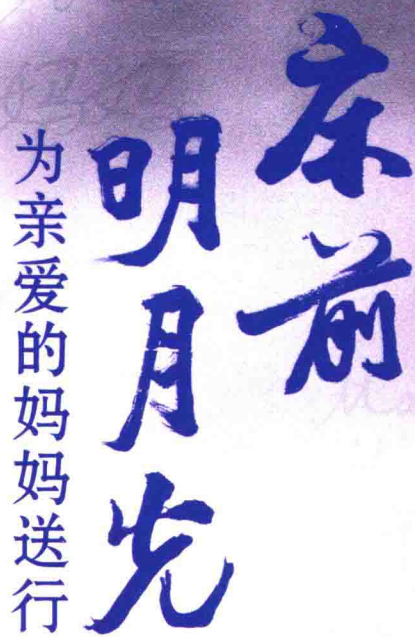 床前
明月光
为亲爱的妈妈送行